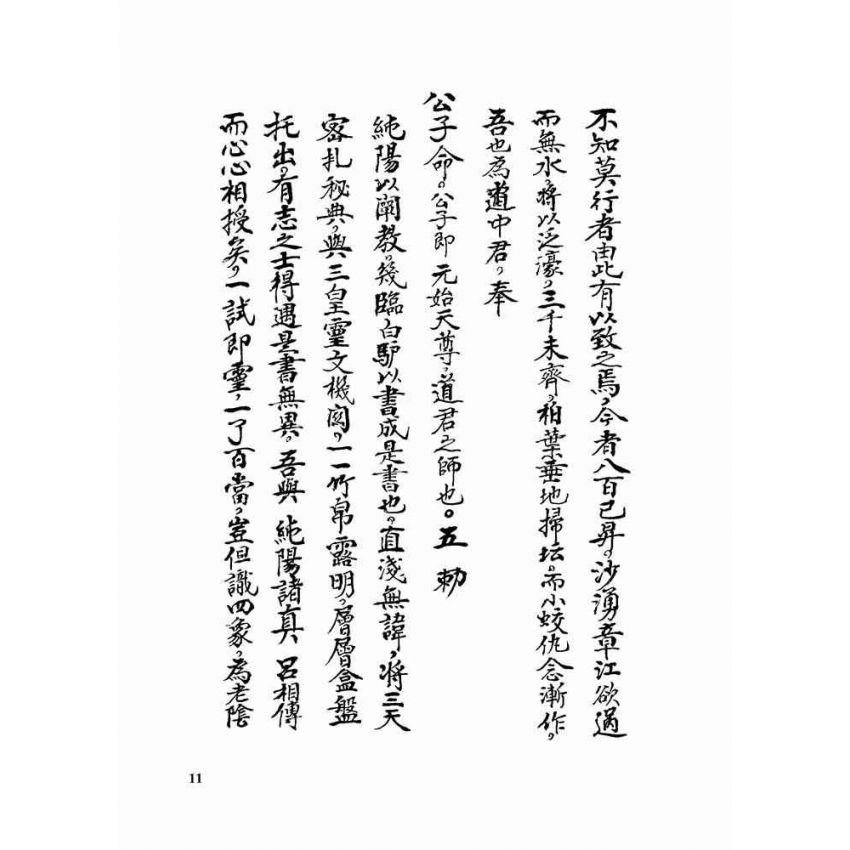 不知莫行者由此有以致之焉，今者八百已昇。沙湧章江欲過
而無水，將以泛濠，三千未齊，柏葉垂地掃坛。而小蛟仇念漸作，
吾也為道中君，奉
公子命。公子即元始天尊，道君之師也。五勅
純陽以闡教。幾臨白馿以書成是書也。直淺無諱，将三天
密扎秘典，與三皇靈文機図，一一竹帛露明，層層盒盤
托出。有志之士得遇是書無異。吾與純陽諸真呂相傳
而心心相授矣，一試即靈，一了百當，豈但識四象，為老陰
11